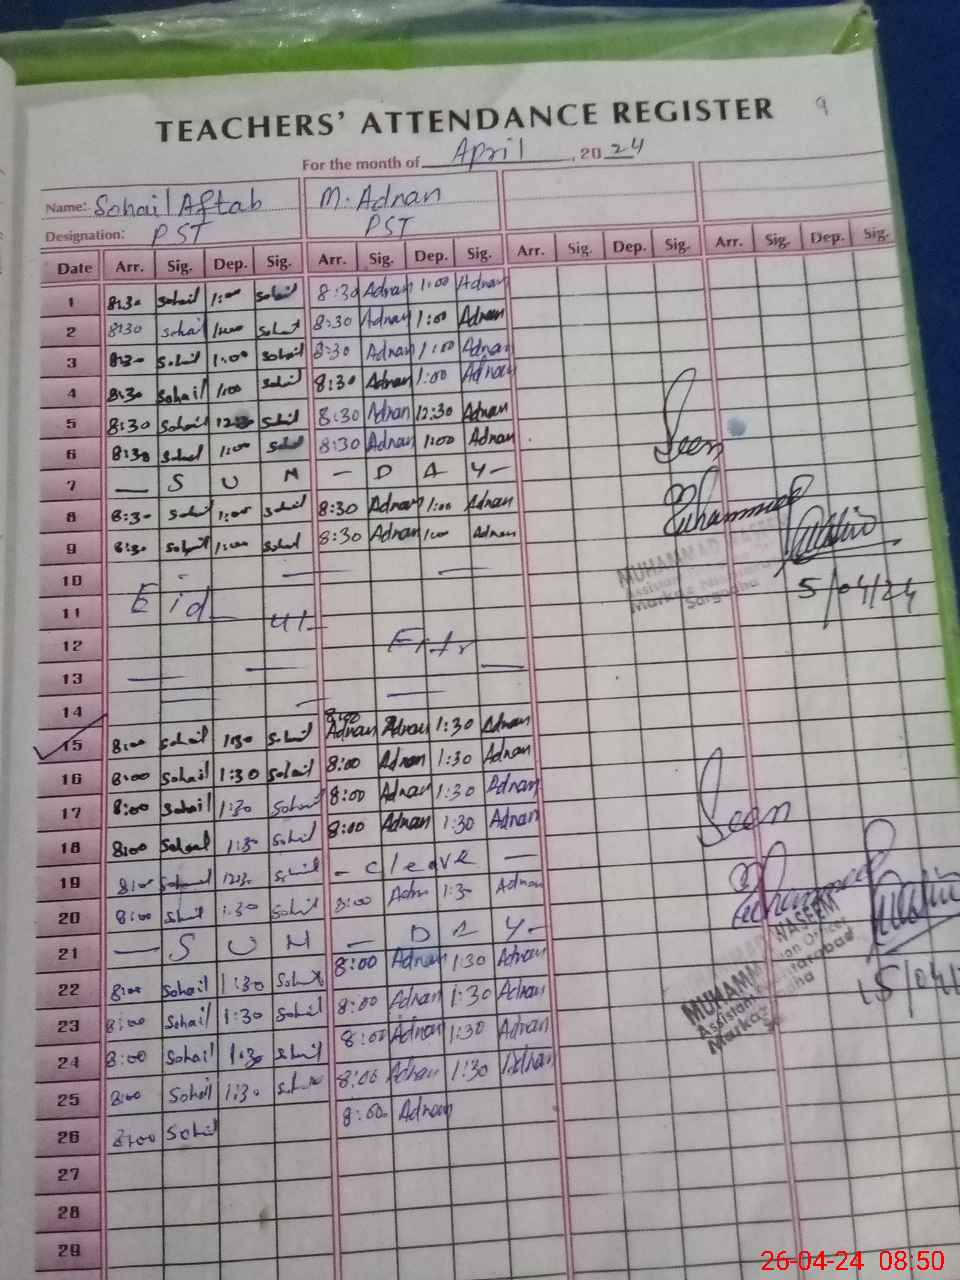 9
TEACHERS' ATTENDANCE REGISTER
For the month of April, 2024
Name: Sohail Aftab M. Adnan
Designation: PST PST
Date Arr. Sig. Dep. Sig. Arr. Sig. Dep. Sig. Arr. Sig. Dep. Sig. Arr. Sig. Dep. Sig.
1 8:30 Sohail 1:00 Sohail 8:30 Adnan 1:00 Adnan
2 8:30 Sohail 1:00 Sohail 8:30 Adnan 1:00 Adnan
3 8:30 Sohail 1:00 Sohail 8:30 Adnan 1:00 Adnan
4 8:30 Sohail 1:00 Sohail 8:30 Adnan 1:00 Adnan
5 8:30 Sohail 8:30 Adnan 12:30 Adnan
6 8:30 Sohail 1:00 Sohail 8:30 Adnan 1:00 Adnan
7 — S U N — D A Y —
8 8:30 Sohail 1:00 Sohail 8:30 Adnan 1:00 Adnan
9 8:30 Sohail 1:00 Sohail 8:30 Adnan 1:00 Adnan
10
11 Eid - ul -
12 Fitr
13
14
15 8:00 Sohail 1:30 Sohail 8:00 Adnan Adnan 1:30 Adnan
16 8:00 Sohail 1:30 Sohail 8:00 Adnan 1:30 Adnan
17 8:00 Sohail 1:30 Sohail 8:00 Adnan 1:30 Adnan
18 8:00 Sohail 1:30 Sohail 8:00 Adnan 1:30 Adnan
19 8:00 Sohail Sohail - C leave —
20 8:00 Sohail 1:30 Sohail 8:00 Adnan 1:30 Adnan
21 — S U N — D A Y —
22 8:00 Sohail 1:30 Sohail 8:00 Adnan 1:30 Adnan
23 8:00 Sohail 1:30 Sohail 8:00 Adnan 1:30 Adnan
24 8:00 Sohail 1:30 Sohail 8:00 Adnan 1:30 Adnan
25 8:00 Sohail 1:30 Sohail 8:00 Adnan 1:30 Adnan
26 8:00 Sohail 8:00 Adnan
27
28
29
Seen
Muhammad Waseem
MUHAMMAD WASEEM
Assistant
Markaz
Sargodha
5/04/24
Seen
Muhammad Waseem
MUHAMMAD WASEEM
Assistant
Markaz
15/04/
26-04-24 08:50